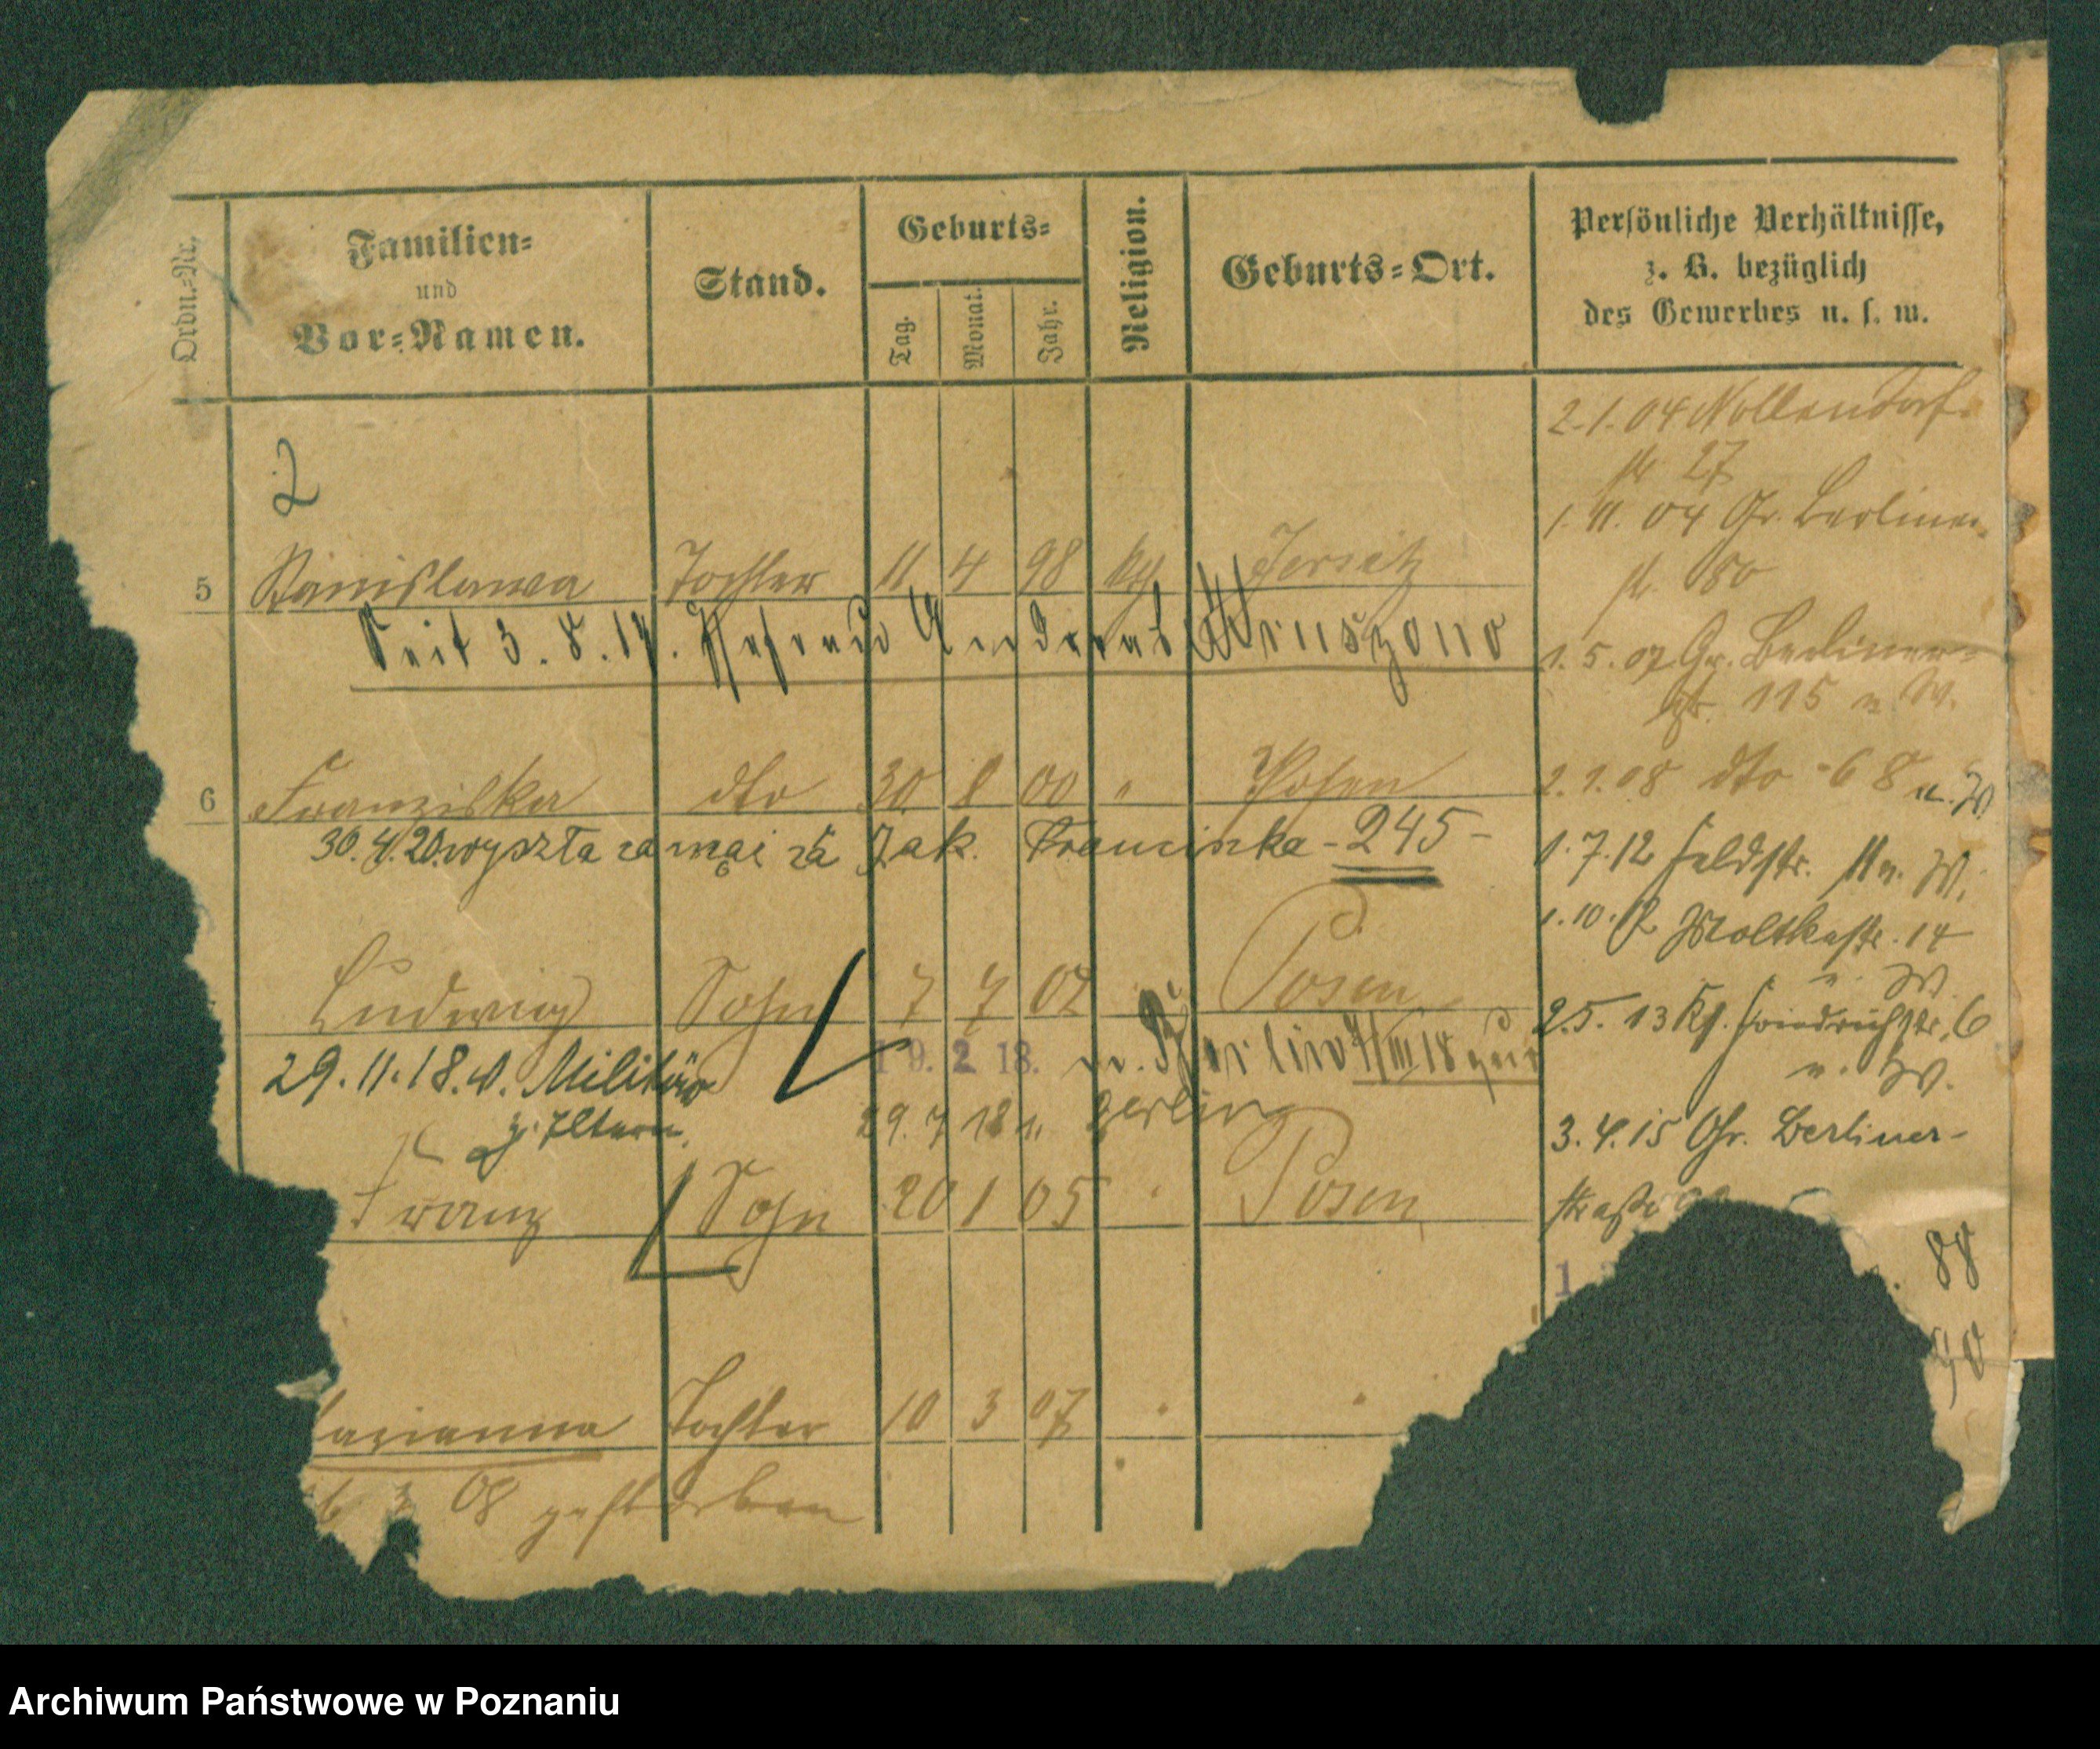 Ordn.-Nr.
Familien-
und
Vor-Namen.
Stand.
Geburts-
Tag.
Monat.
Jahr.
Religion.
Geburts-Ort.
Persönliche Verhältnisse,
z. B. bezüglich
des Gewerbes u. s. w.
5 Stanislawa Tochter 11 4 98 kth Jersitz
Seit 3. 8. 14. Ehefrau
6 Franziska dto 30 8 00 " Posen
30. 4. 20. wyszła za mąż za Jak. Francinka - 245 -
Ludwig Sohn 7 7 02 Posen
19. 2. 18. n. Berlin
29. 11. 18. v. Militär
z. Eltern
29. 7 18 n. Berlin
Franz Sohn 20 1 05 " Posen
arianna Tochter 10 3 07 " "
08 gestorben
2. 1. 04 Nollendorf-
str 27
1. 11. 04 Gr. Berliner
str. 80
1. 5. 07 Gr. Berliner-
str. 115 n. W.
2. 1. 08 dto 68 n. W
1. 7. 12 Feldstr. 11 n. W.
1. 10. 12 Moltkestr. 14
n. W
2. 5. 13 Kl. Friedrichstr. 6
n. W.
3. 4. 15 Gr. Berliner-
straße
88
90
Archiwum Państwowe w Poznaniu